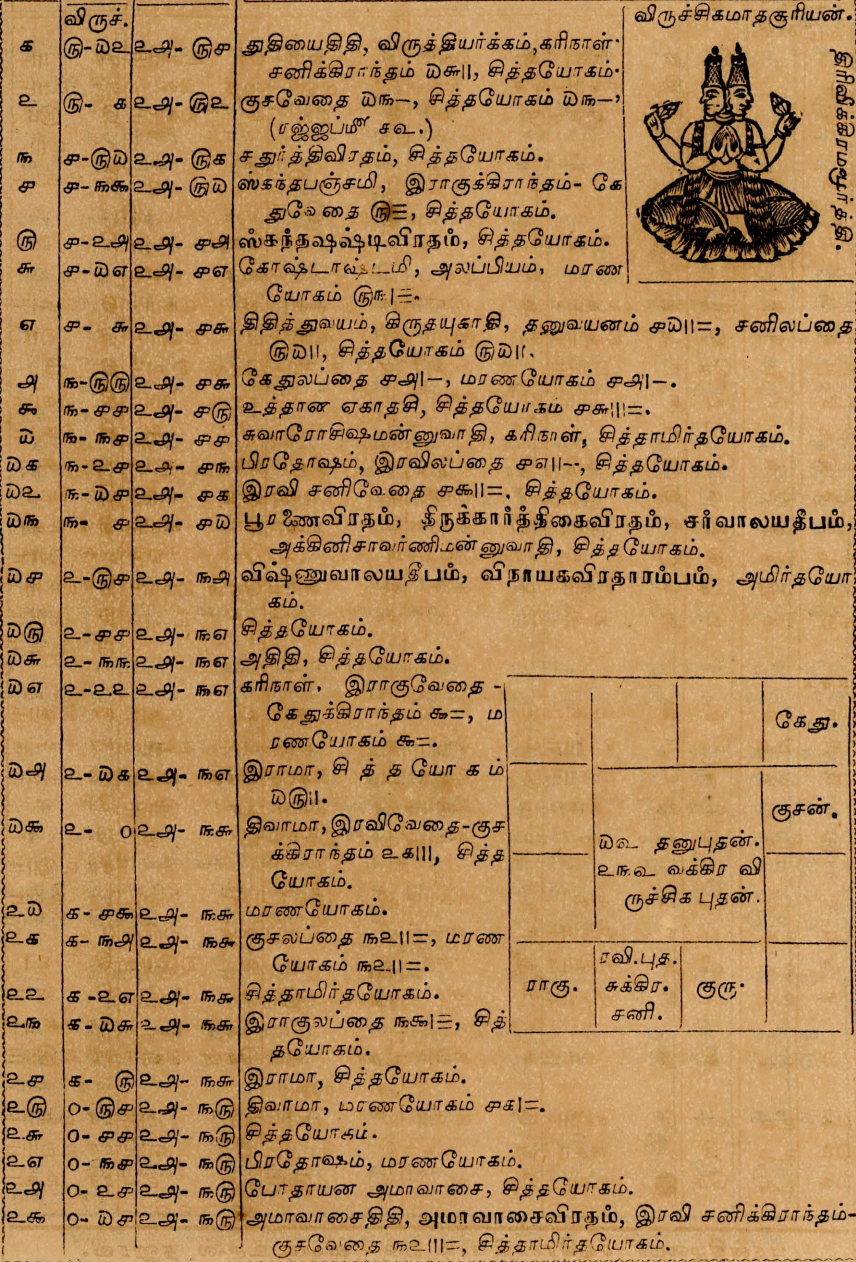 விருச்.
விருச்சிகமாதசூரியன்.
திரிவிக்கிரமமூர்த்தி.
௧ ௫-௰௨ ௨௮-௫௪ துதியைதிதி, விருத்தியர்க்கம், கரிநாள்
சனிக்கிராந்தம் ௰௬||, சித்தயோகம்
௨ ௫- ௧ ௨௮-௫௨ குசவேதை ௰௩–, சித்தயோகம் ௰௩–,
௩ ௪-௫௰ ௨௮-௫௧ சதுர்த்திவிரதம், சித்தயோகம்.
௪ ௪-௩௯ ௨௮-௫௰ ஸ்கந்தபஞ்சமி, இராகுக்கிராந்தம்- கே
துவேதை ௫Ξ, சித்தயோகம்.
௫ ௪-௨௮ ௨௮-௪௮ ஸ்கந்தஷஷ்டிவிரதம், சித்தயோகம்.
௬ ௪-௰௭ ௨௮-௪௭ கோஷ்டாஷ்டமி, அலப்பியம், மரண
யோகம் ௫௩|Ξ.
௭ ௪- ௬ ௨௮-௪௬ திதித்துவயம், கிருதயுகாதி, தனுவயனம் ௪௰||=, சனிலப்தை
௫௰||, சித்தயோகம் ௫௰||.
௮ ௩-௫௫ ௨௮-௪௬ கேதுலப்தை ௪௮|–, மரணயோகம் ௪௮|–.
௯ ௩-௪௪ ௨௮-௪௫ உத்தான ஏகாதசி, சித்தயோகம் ௪௬|||=.
௰ ௩-௩௪ ௨௮-௪௪ சுவாரோசிஷமன்னுவாதி, கரிநாள், சித்தாமிர்தயோகம்.
௰௧ ௩-௨௪ ௨௮-௪௩ பிரதோஷம், இரவிலப்தை ௪௭||–, சித்தயோகம்.
௰௨ ௩-௰௪ ௨௮-௪௧ இரவி சனிவேதை ௪௯||=, சித்தயோகம்.
௰௩ ௩- ௪ ௨௮-௪௰ பூரணைவிரதம், திருக்கார்த்திகைவிரதம், சர்வாலயதீபம்,
அக்கினிசாவர்ணிமன்னுவாதி, சித்தயோகம்.
௰௪ ௨-௫௪ ௨௮-௩௮ விஷ்ணுவாலயதீபம், விநாயகவிரதாரம்பம், அமிர்தயோ
கம்.
௰௫ ௨-௪௪ ௨௮-௩௭ சித்தயோகம்.
௰௬ ௨-௩௩ ௨௮-௩௭ அதிதி, சித்தயோகம்.
௰௭ ௨-௨௨ ௨௮-௩௭ கரிநாள். இராகுவேதை -
கேதுக்கிராந்தம் ௯=, ம
ரணயோகம் ௯=.
௰௮ ௨-௰௧ ௨௮-௩௭ இராமா, சித்தயோகம்
௰௫||.
௰௯ ௨- ௦ ௨௮-௩௬ திவாமா, இரவிவேதை-குச
க்கிராந்தம் ௨௧|||, சித்த
யோகம்.
௨௰ ௧-௪௯ ௨௮-௩௬ மரணயோகம்.
௨௧ ௧-௩௮ ௨௮-௩௬ குசலப்தை ௩௨||=, மரண
யோகம் ௩௨||=.
௨௨ ௧-௨௭ ௨௮-௩௬ சித்தாமிர்தயோகம்.
௨௩ ௧-௰௬ ௨௮-௩௬ இராகுலப்தை ௩௯|Ξ, சித்
தயோகம்.
௨௪ ௧- ௫ ௨௮-௩௬ இராமா, சித்தயோகம்.
௨௫ ௦-௫௪ ௨௮-௩௫ திவாமா, மரணயோகம் ௪௧|=.
௨௬ ௦-௪௪ ௨௮-௩௫ சித்தயோகம்.
௨௭ ௦-௩௪ ௨௮-௩௫ பிரதோஷம், மரணயோகம்.
௨௮ ௦-௨௪ ௨௮-௩௫ போதாயன அமாவாசை, சித்தயோகம்.
௨௯ ௦-௰௪ ௨௮-௩௫ அமாவாசைதிதி, அமாவாசைவிரதம், இரவி சனிக்கிராந்தம்-
குசவேதை ௩௨|||=, சித்தாமிர்தயோகம்.
கேது.
குசன்.
௰௳ தனுபுதன்.
௨௩௳ வக்கிர வி
ருச்சிக புதன்.
ராகு.
ரவி.புத.
சுக்கிர.
சனி.
குரு.